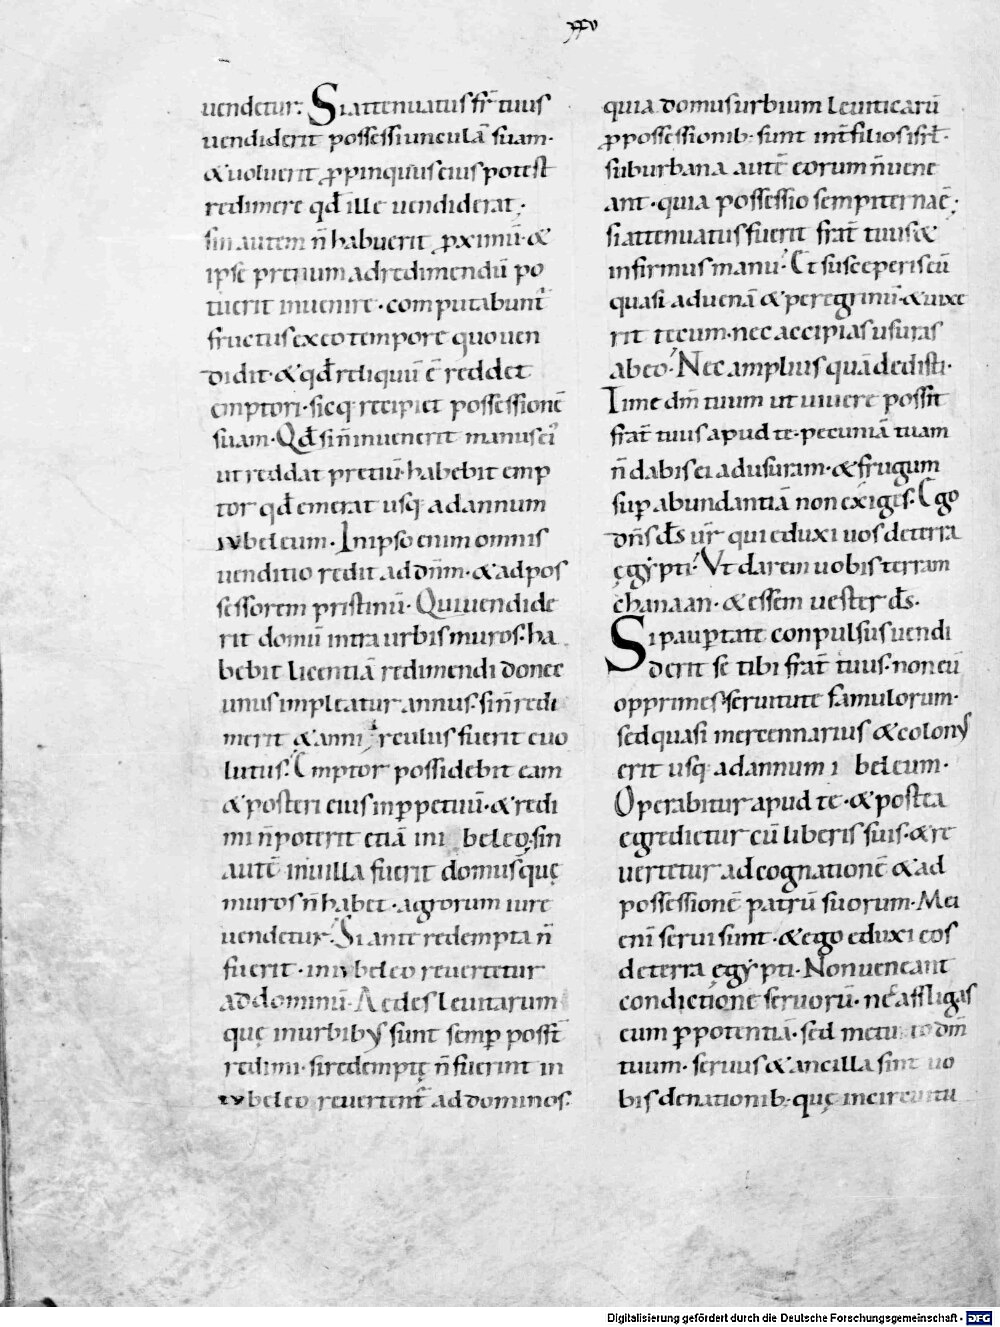 xxv
uendetur. Si attenuatus fr̄ tuus
uendiderit possessiunculā suam·
& uoluerit ꝓpinquus eius potest
redimere qđ ille uendiderat;
sin autem n̄ habuerit ꝓximū· &
ipse pretium ad redimendū po
tuerit inuenire· computabunt̄
fructus ex eo tempore quo uen
didit· & qđ reliquū ē reddet
emptori· sicq; recipiet possessionē
suam· Qđ si n̄ inuenerit manus ei'
ut reddat pretiū· habebit emp
tor qđ emerat usq; ad annum
iubeleum· In ipso enim omnis
uenditio redit ad dn̄m· & ad pos
sessorem pristinū· Qui uendide
rit domū intra urbis muros· ha
bebit licentiā redimendi donec
unus impleatur annus· si n̄ redi
merit & anni circulus fuerit euo
lutus· Emptor possidebit eam
& posteri eius in ꝑpetuū· & redi
mi n̄ poterit etiā in iubeleo· sin
autē in uilla fuerit domus quę
muros n̄ habet· agrorum iure
uendetur· Si ante redempta n̄
fuerit· in iubeleo reuertetur
ad dominū· Aedes leuitarum
quę in urbibus sunt semꝑ poss̄t
redimi· si redemptę n̄ fuerint in
iubeleo reuertent̄ ad dominos·
quia domus urbium leuiticarū
ꝓ possessionib; sunt int̄ filios isrł·
suburbana autē eorum n̄ uene
ant· quia possessio sempiterna ē;
si attenuatus fuerit frat̄ tuus &
infirmus manu· Et susceperis eū
quasi aduenā & peregrinū· & uixe
rit tecum· nec accipias usuras
ab eo· Nec amplius quā dedisti·
Time dm̄ tuum ut uiuere possit
frat̄ tuus apud te· pecuniā tuam
n̄ dabis ei ad usuram· & frugum
suꝑabundantiā non exiges· Ego
dn̄s d̄s ur̄ qui eduxi uos de terra
ęgypti· Vt darem uobis terram
chanaan· & essem uester d̄s·
Si pauꝑtate conpulsus uendi
derit se tibi frat̄ tuus· non eū
opprimes seruitute famulorum·
sed quasi mercennarius & colonus
erit usq; ad annum iubeleum·
Operabitur apud te· & postea
egredietur cū liberis suis· & re
uertetur ad cognationē & ad
possessionē patrū suorum· Mei
enī serui sunt· & ego eduxi eos
de terra ęgypti· Non ueneant
condictione seruorū· ne affligas
eum ꝑ potentiā· sed metuito dm̄
tuum· seruus & ancilla sint uo
bis de nationib; quę in circuitu
Digitalisierung gefördert durch die Deutsche Forschungsgemeinschaft - DFG